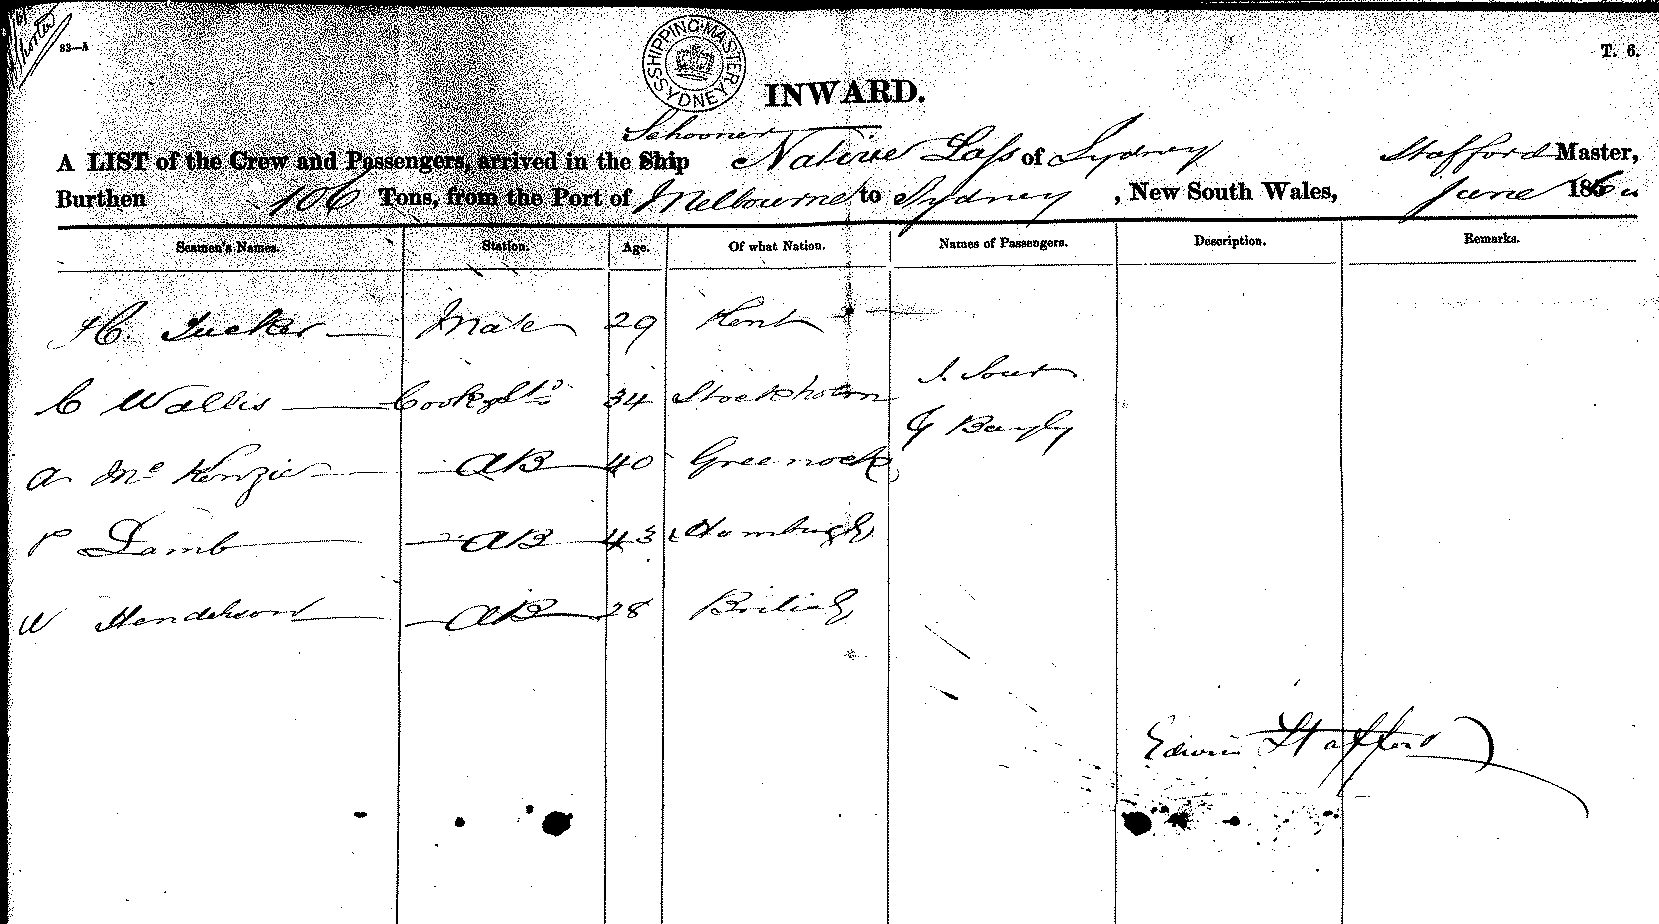 83—A
T. 6.
SHIPPING MASTER SYDNEY
INWARD.
Schooner
A LIST of the Crew and Passengers, arrived in the Ship Native Lass of Sydney Stafford Master,
Burthen 106 Tons, from the Port of Melbourne to Sydney , New South Wales, June 186
Seamen's Names. Station. Age. Of what Nation. Names of Passengers. Description. Remarks.
H. Tucker Mate 29 Kent
J.
C Wallis Cook & Std 34 Stockholm
G Bayly
A Mc Kenzie AB 40 Greenock
P Lamb AB 43 Hamburgh
W Henderson AB 28 British
Edwin Stafford